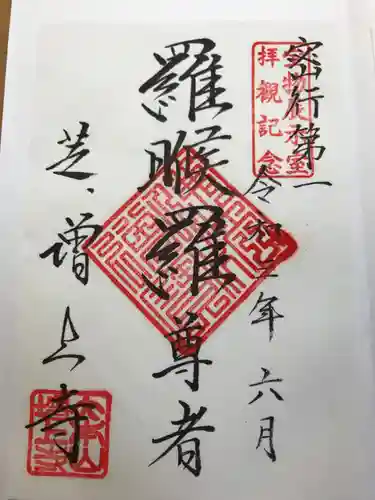 密行第一
宝物展示室
拝観記念
令和三年六月
羅睺羅尊者
芝、増上寺